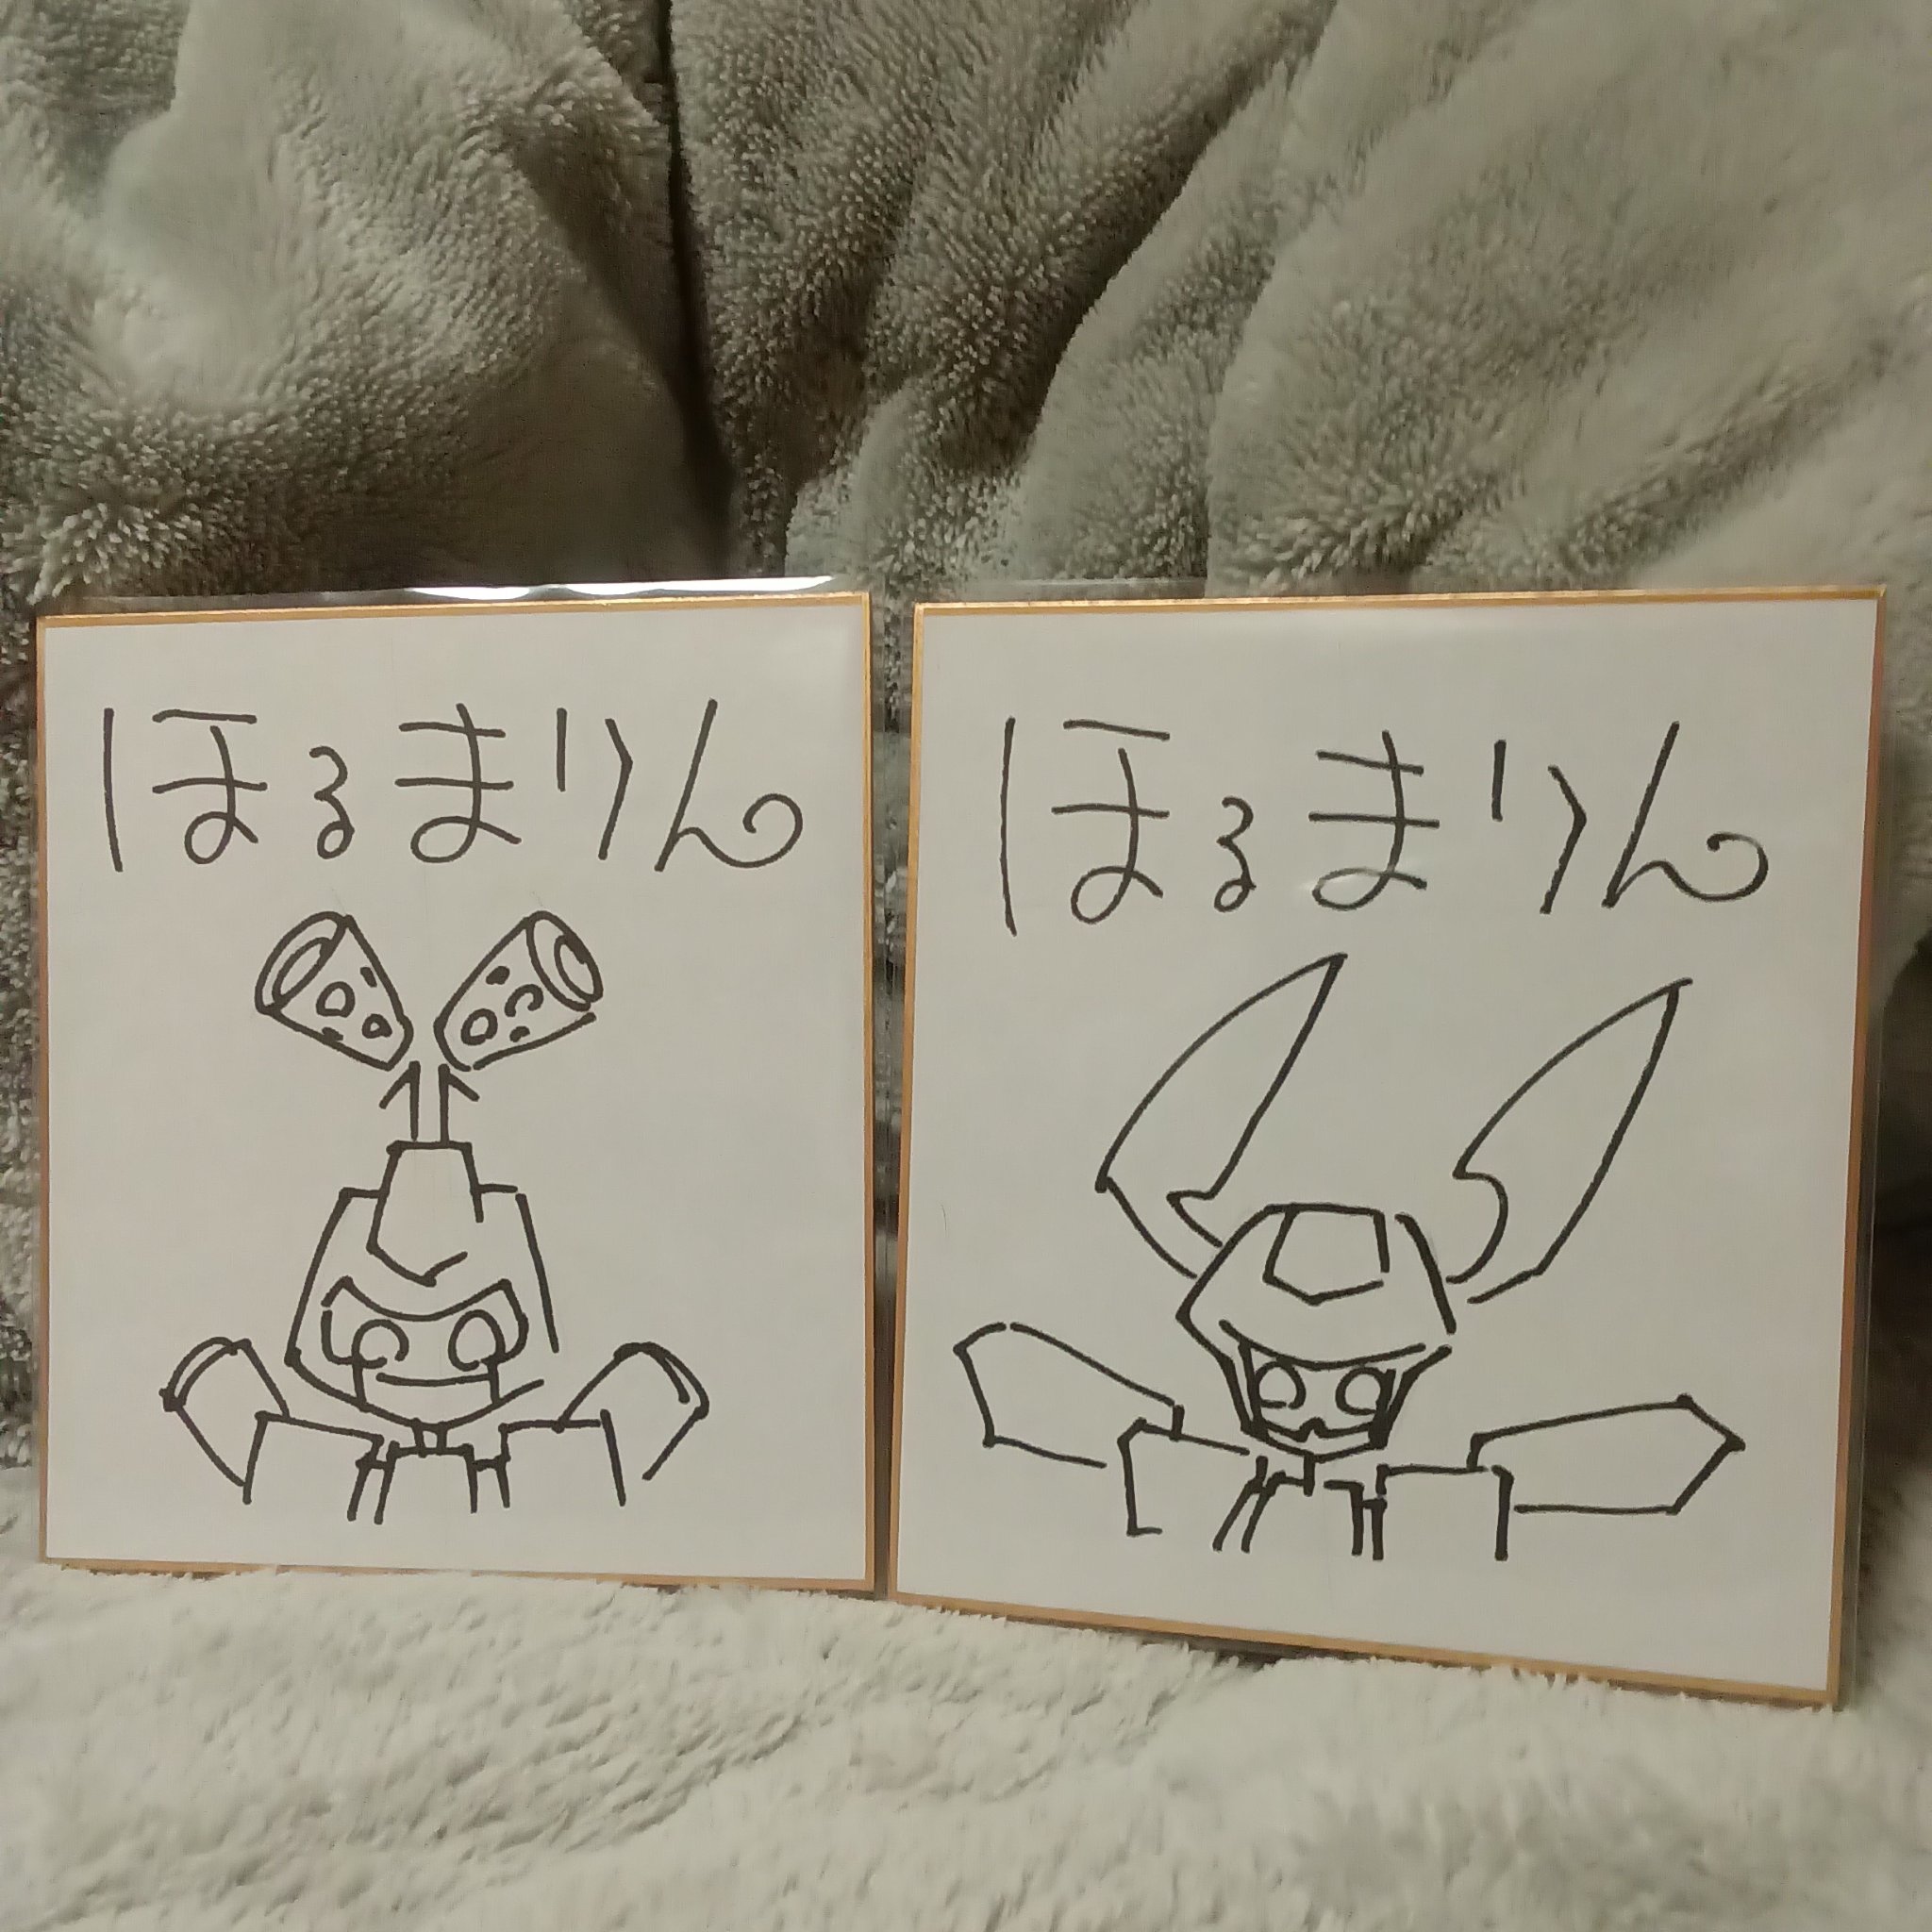 ほるまりん
ほるまりん